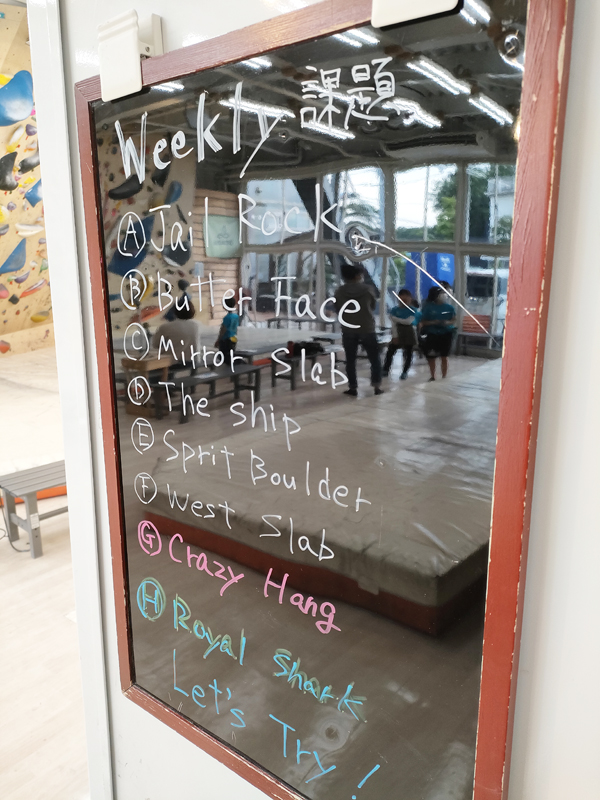 Weekly 課題
Ⓐ Jail Rock
Ⓑ Butter Face
Ⓒ Mirror Slab
Ⓓ The ship
Ⓔ Sprit Boulder
Ⓕ West Slab
Ⓖ Crazy Hang
Ⓗ Royal Shark
Let's Try!